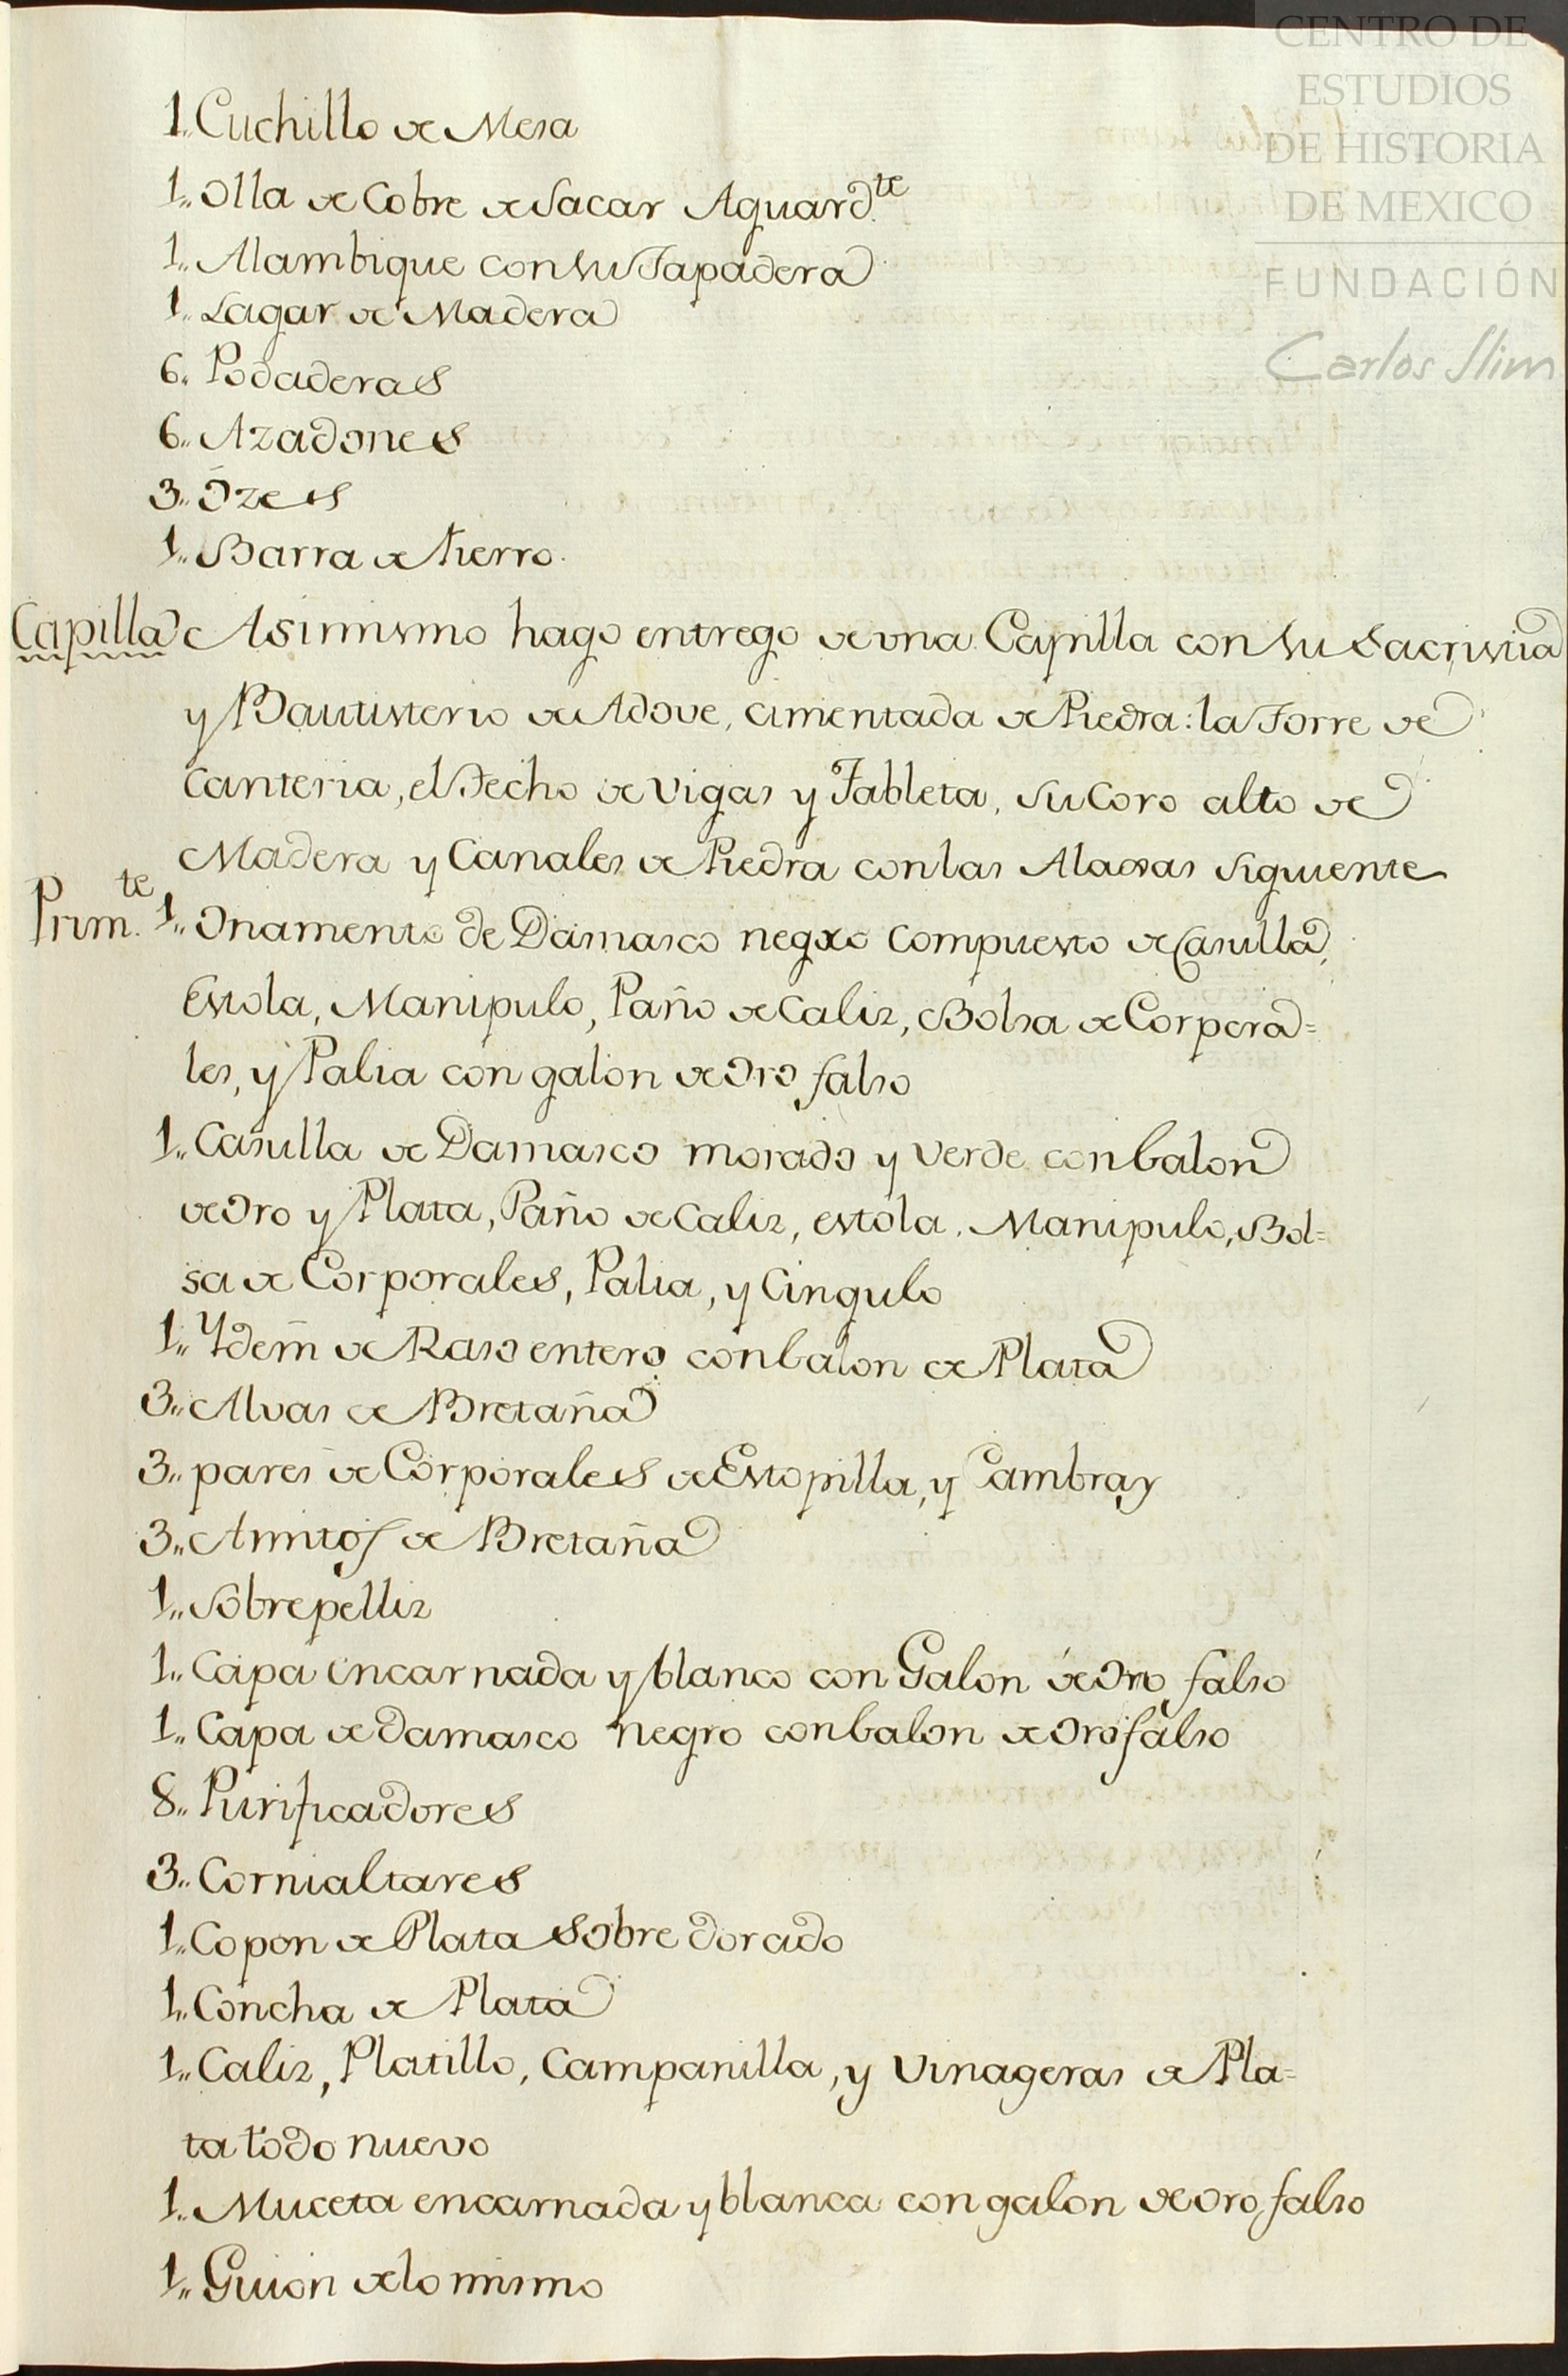 CENTRO DE
ESTUDIOS
DE HISTORIA
DE MEXICO
FUNDACIÓN
Carlos Slim
1,, Cuchillo de Mesa
1,, Olla de Cobre de Sacar Aguard.te
1,, Alambique con su Tapadera
1,, Lagar de Madera
6,, Podaderas
6,, Azadones
3,, Ozes
1,, Barra de hierro.
Capilla Asimismo hago entrego de vna Capilla con su Sacristia
y Bautisterio de Adove, cimentada de Piedra: la Torre de
Canteria, el Techo de Vigas y Tableta, su Coro alto de
Madera y Canales de Piedra con las Alaxas siguiente
Prim.te 1,, Onamento de Damasco negro compuesto de Casulla,
Estola, Manipulo, Paño de Caliz, Bolsa de Corpora=
les, y Palia con galon de Oro falso
1,, Casulla de Damasco morado y verde con Galon
de Oro y Plata, Paño de Caliz, estola, Manipulo, Bol=
sa de Corporales, Palia, y Cingulo
1,, Ydem de Raso entero con Galon de Plata
3,, Alvas de Bretaña
3,, pares de Corporales de Estopilla, y Cambray
3,, Amitos de Bretaña
1,, Sobrepelliz
1,, Capa encarnada y blanco con Galon de Oro falso
1,, Capa de Damasco negro con Galon de Oro falso
8,, Purificadores
3,, Cornialtares
1,, Copon de Plata sobre dorado
1,, Concha de Plata
1,, Caliz, Platillo, Campanilla, y Vinageras de Pla=
ta todo nuevo
1,, Muceta encarnada y blanca con galon de oro falso
1,, Guion de lo mismo